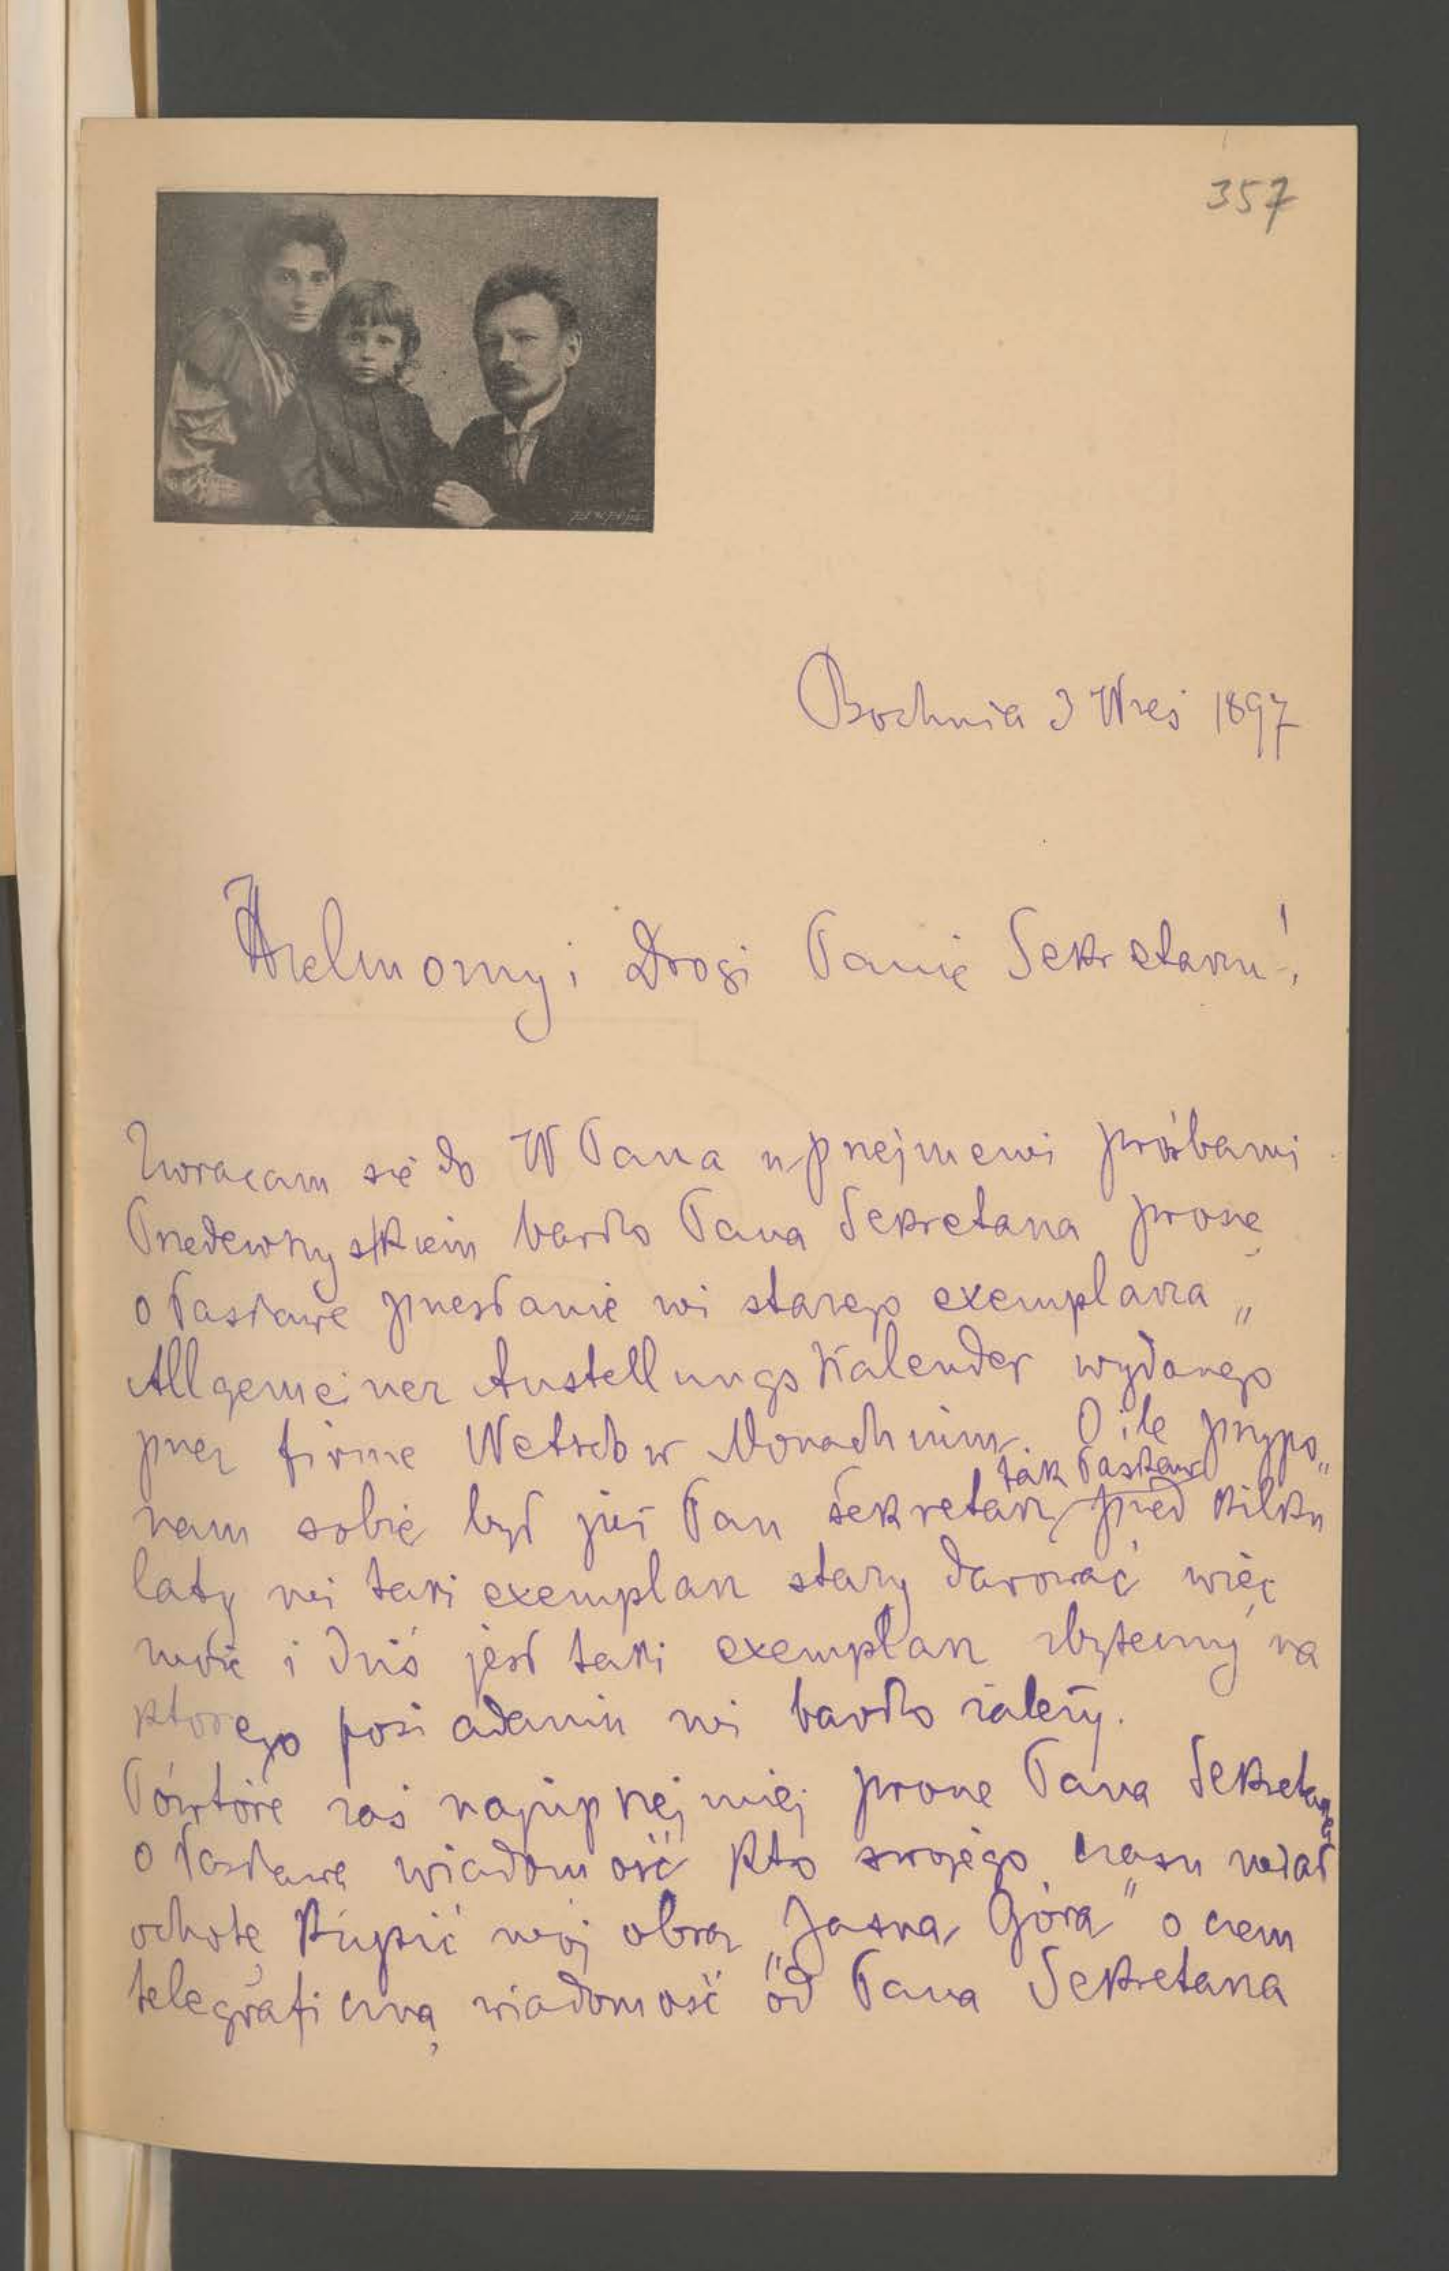 357
Bochnia 3 Wrześ 1897
Wielmożny i Drogi Panie Sekretarzu!
Zwracam się do WPana z uprzejmemi prośbami
Przedewszystkiem bardzo Pana Sekretarza proszę
o łaskawe przesłanie mi starego exemplarza „
Allgemeiner Austellungs Kalender wydanego
przez firme Wetsch w Monachium. O ile przypo„
nam sobie był już Pan Sekretarz tak łaskaw przed kilku
laty mi taki exemplarz stary darować więc
może i dziś jest taki exemplarz zbyteczny na
którego posiadaniu mi bardzo zależy.
Powtóre zaś najuprzejmiej prosze Pana Sekretarza
o łaskawą wiadomość kto swojego czasu miał
ochotę kupić mój obraz „Jasna Góra" o czem
telegraficzną wiadomość od Pana Sekretarza